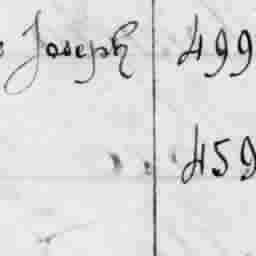 Joseph 499
459